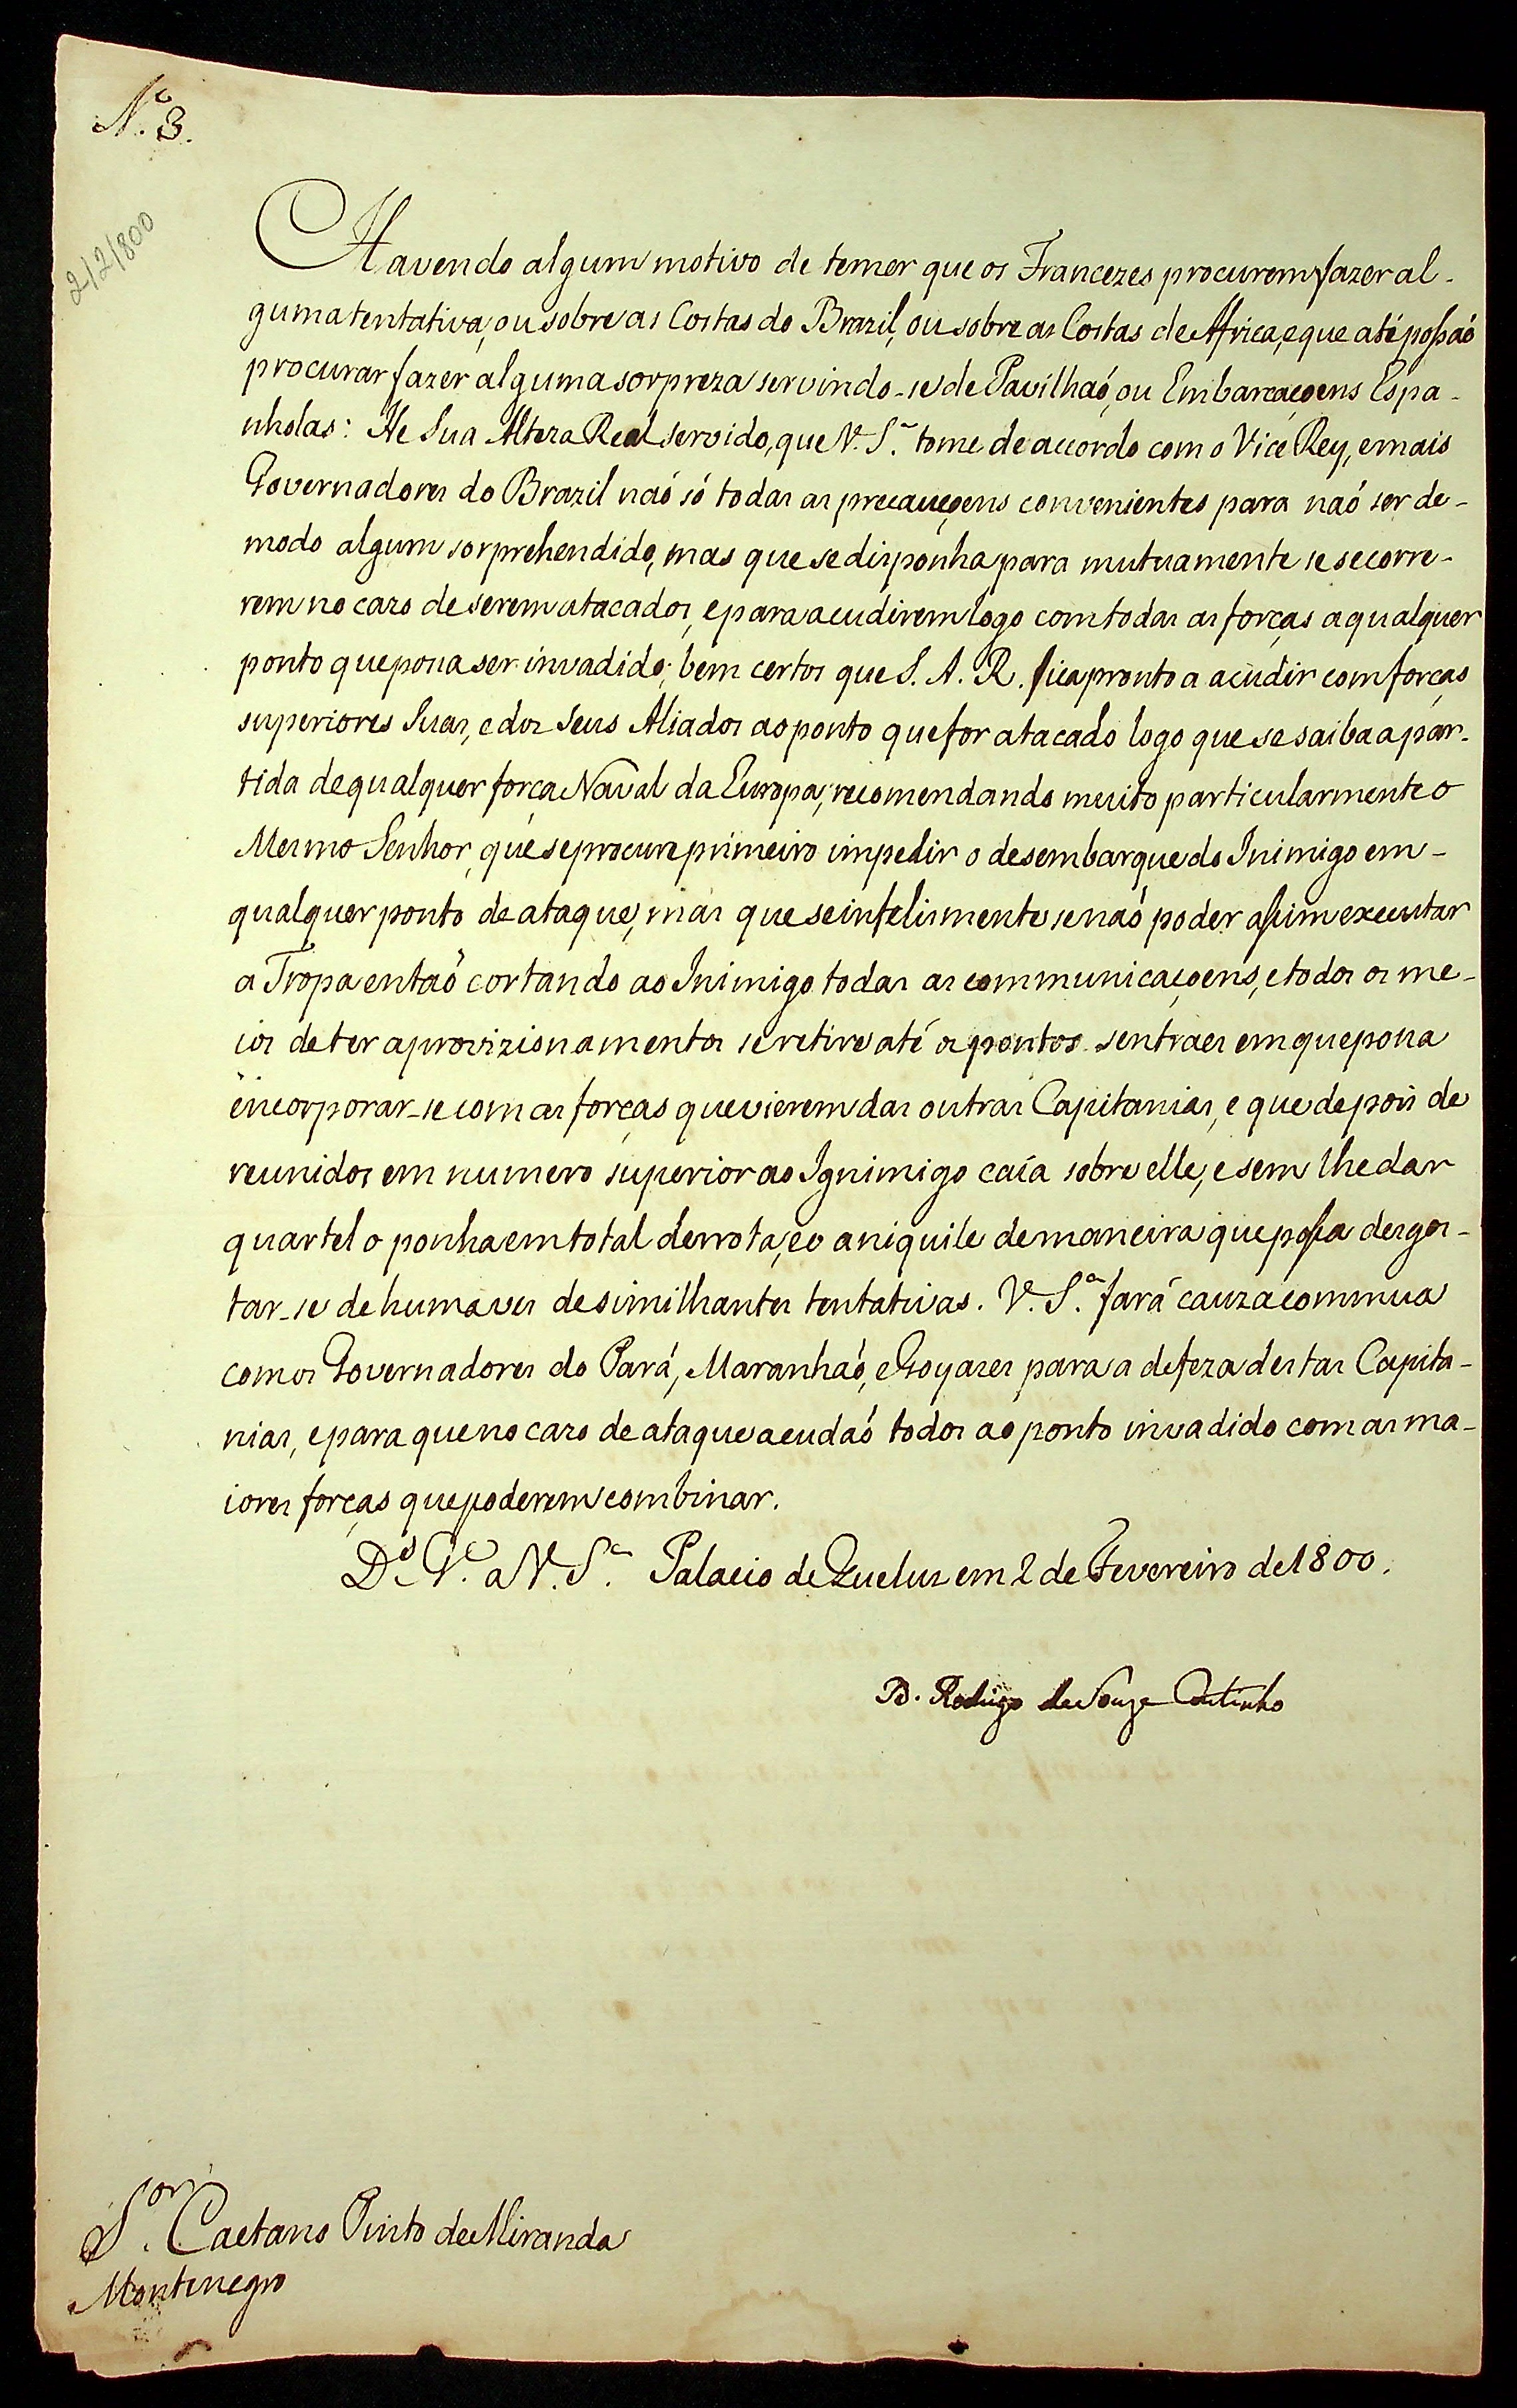 N.º 3.
2/2/800
Havendo algum motivo de temer que os Francezes procurem fazer al-
guma tentativa, ou sobre as Costas do Brazil, ou sobre as Costas de Africa, e que até possaõ
procurar fazer alguma sorpreza servindo-se de Pavilhaõ, ou Embarcaçoens Espa-
nholas: He Sua Alteza Real servido, que V. S.ª tome de accordo com o Vice Rey, e mais
Governadores do Brazil naõ só todas as precauçoens convenientes para naõ ser de-
modo algum sorprehendido, mas que se disponha para mutuamente se secorre-
rem no cazo de serem atacados, e para acudirem logo com todas as forças a qualquer
ponto que possa ser invadido; bem certos que S. A. R. fica pronto a acudir com forças
superiores Suas, e dos Seus Aliados ao ponto que for atacado logo que se saiba a par-
tida de qualquer força Naval da Europa; recomendando muito particularmente o
Mesmo Senhor, que se procure primeiro impedir o desembarque do Inimigo em-
qualquer ponto de ataque, mas que se infelismente se naõ poder assim executar
a Tropa entaõ cortando ao Inimigo todas as communicaçoens, e todos os me-
ios de ter aprovizionamentos se retire até os pontos sentraes em que possa
incorporar-se com as forças que vierem das outras Capitanias, e que depois de
reunidos em numero superior ao Ignimigo caía sobre elle, e sem lhe dar
quartel o ponha em total derrota, e o aniquile de maneira que possa desgos-
tar-se de huma ves de similhantes tentativas. V. S.ª fará cauza commua
com os Governadores do Pará, Maranhaõ, e Goyazes para a defeza destas Capita-
nias, e para que no cazo de ataque acudaõ todos ao ponto invadido com as ma-
iores forças que poderem combinar.
D.s G.e a V. S.ª Palacio de Queluz em 2 de Fevereiro de 1800.
D. Rodrigo de Souza Coutinho
S.or Caetano Pinto de Miranda
Montenegro